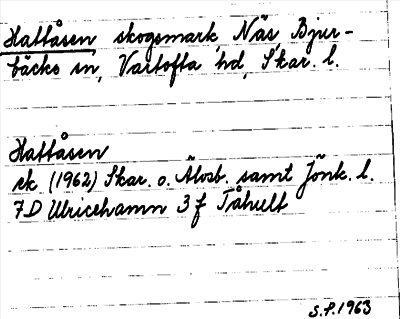 Hattåsen, skogsmark, Näs, Bjur-
bäcks sn, Vartofta hd, Skar. l.
Hattåsen
ek (1962) Skar. o. Älvsb. samt Jönk. l.
7D Ulricehamn 3 f Tåhult
S.F. 1963